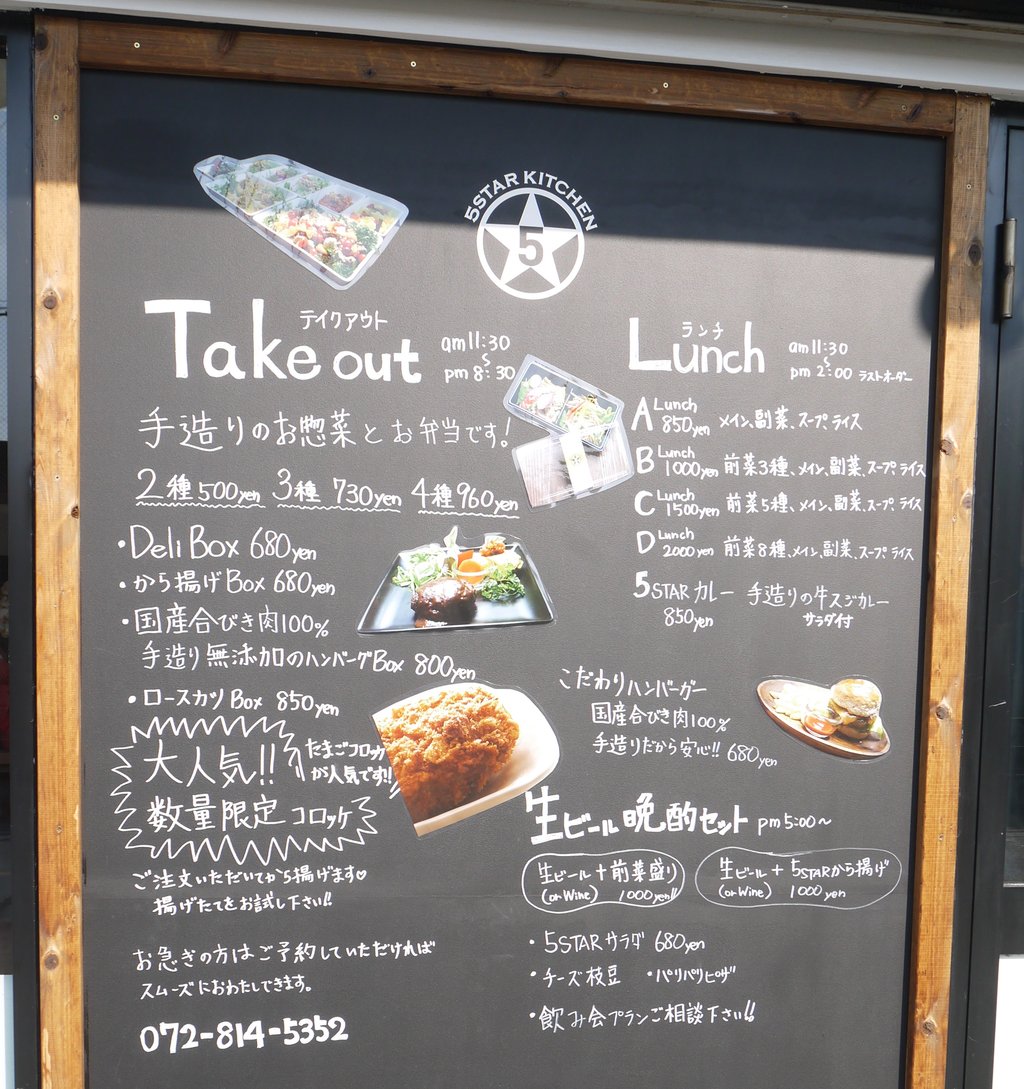 5STAR KITCHEN
5
テイクアウト
Take out
am11:30
〜
pm 8:30
手造りのお惣菜とお弁当です!
2種 500yen 3種 730yen 4種 960yen
・Deli Box 680yen
・から揚げBox 680yen
・国産合びき肉100%
手造り無添加のハンバーグBox 800yen
・ロースカツBox 850yen
大人気!!
たまごコロッケ
が人気です!!
数量限定コロッケ
ご注文いただいてから揚げます♡
揚げたてをお試し下さい!!
お急ぎの方はご予約していただければ
スムーズにおわたしできます。
072-814-5352
ランチ
Lunch
am11:30
〜
pm 2:00 ラストオーダー
A Lunch 850yen メイン、副菜、スープ、ライス
B Lunch 1000yen 前菜3種、メイン、副菜、スープ、ライス
C Lunch 1500yen 前菜5種、メイン、副菜、スープ、ライス
D Lunch 2000yen 前菜8種、メイン、副菜、スープ、ライス
5STARカレー 手造りの牛スジカレー
850yen サラダ付
こだわりハンバーガー
国産合びき肉100%
手造りだから安心!! 680yen
生ビール晩酌セット pm5:00〜
生ビール+前菜盛り
(or Wine) 1000yen!!
生ビール+5STARから揚げ
(or Wine) 1000yen
・5STARサラダ 680yen
・チーズ枝豆 ・パリパリピザ
・飲み会プランご相談下さい!!